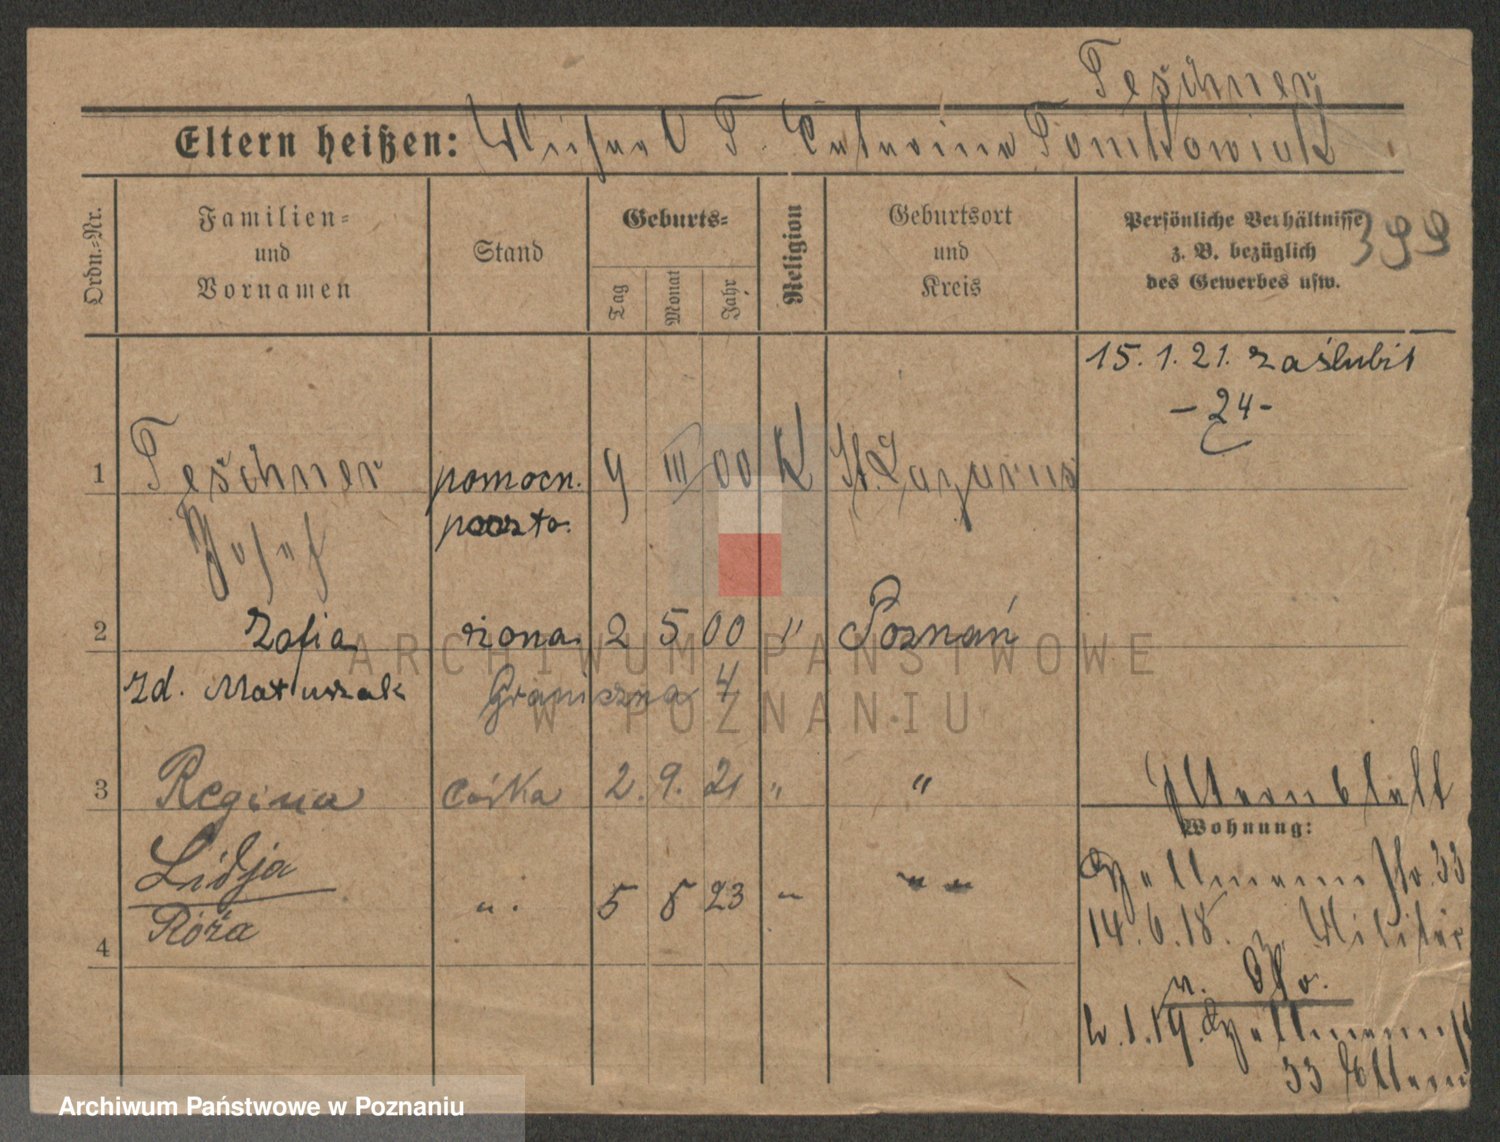 Teschner
Eltern heißen: Michael T. Catarina Tomkowiak
Ordn.-Nr.
Familien-
und
Vornamen
Stand
Geburts-
Tag
Monat
Jahr
Religion
Geburtsort
und
Kreis
Persönliche Verhältnisse
z. B. bezüglich
des Gewerbes usw.
399
15. 1. 21. zaślubił
- 24 -
1 Teschner pomocn. 9 III 00 K St. Lazarus
poczto.
Josef
2 Zofia żona 2 5 00 " Poznań
zd. Matuszak Graniczna 4
3 Regina córka 2. 9. 21 " "
Elternblatt
Wohnung:
Lidja
Róża
4 " 5 8 23 " " "
33
14. 6. 18. z. Militär
1. 19.
33 Eltern
ARCHIWUM PAŃSTWOWE
W POZNANIU
Archiwum Państwowe w Poznaniu